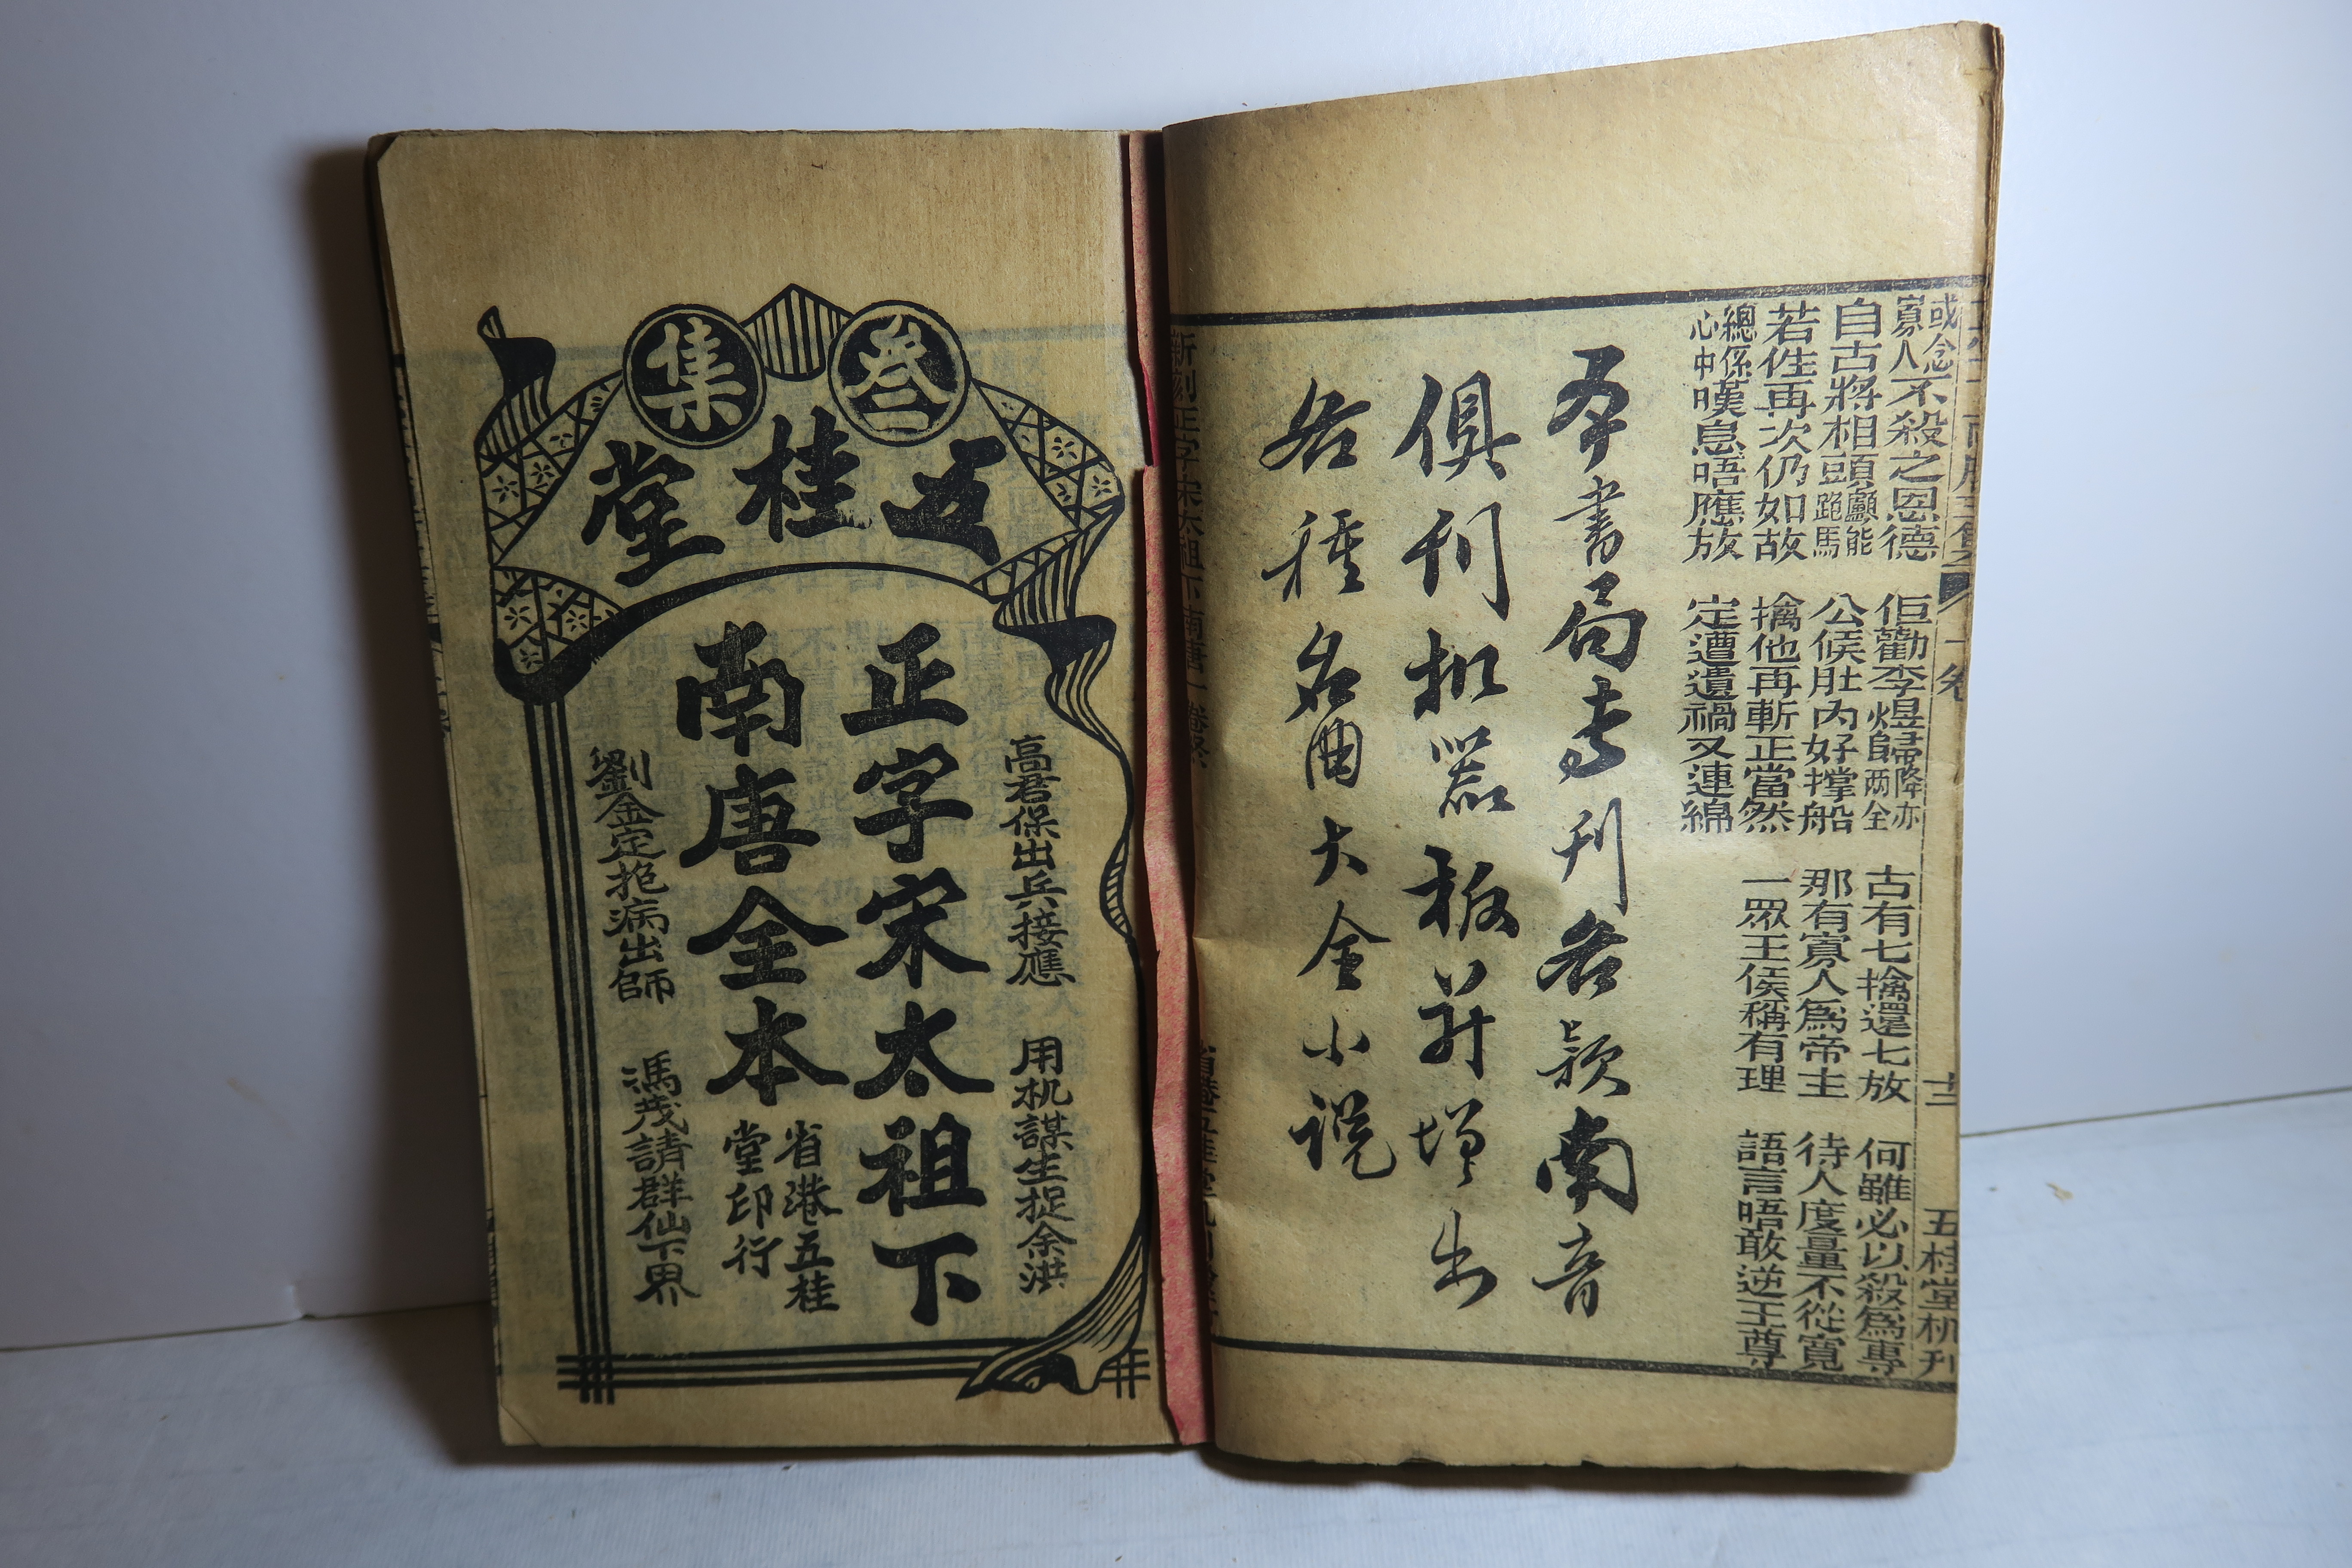 一卷 十二 五桂堂机刊
或念寡人不殺之恩德 佢勸李煜歸降亦两全 古有七擒還七放 何雖必以殺為專
自古將相頭顱能跑馬 公候肚内好撑船 那有寡人為帝主 待人度量不從寬
若佢再次仍如故 擒他再斬正當然 一眾王侯稱有理 語言唔敢逆王尊
總係心中嘆息唔應放 定遭遺禍又連綿
本書局專刊各款南音
俱刊机器板並增出
各種名曲大全小说
新刻正字宋太祖下南唐一卷終
叁集
五桂堂
高君保出兵接應 用机謀生捉余洪
正字宋太祖下
南唐全本
省港五桂
堂印行
劉金定抱病出師 馮茂請群仙下界